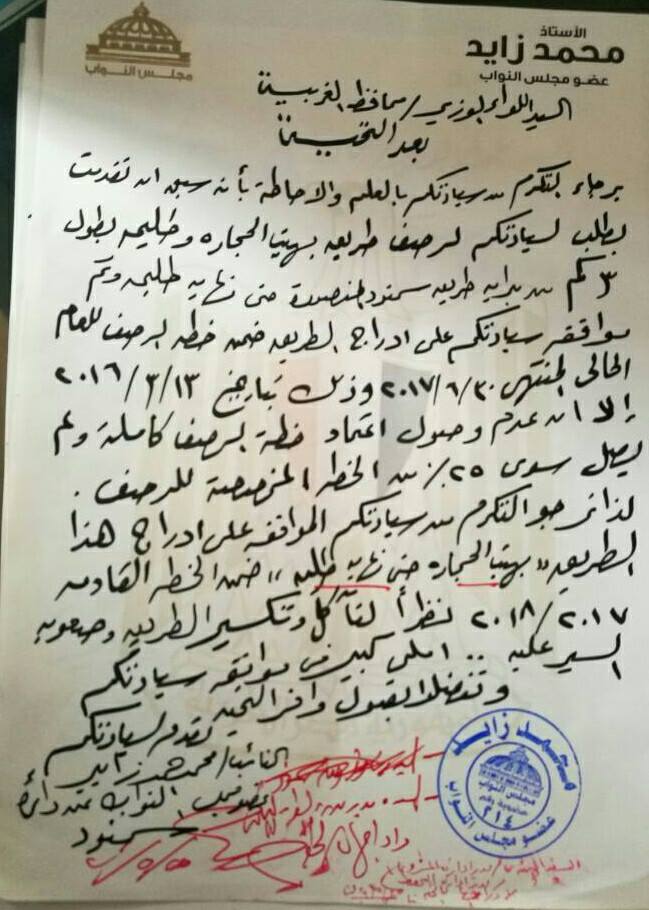 الأستاذ
محمد زايد
عضو مجلس النواب
مجلس النواب
السيد اللواء الوزير / محافظ الغربية
بعد التحية
برجاء التكرم من سيادتكم بالعلم والاحاطة بأنه سبق ان تقدمت
بطلب لسيادتكم لرصف طريق بهتيا الحجاره وطليمه بطول
٣ كم من بدايه طريق سمنود المنصورة حتى نهايه طليمه وتم
موافقه سيادتكم على ادراج الطريق ضمن خطه الرصف للعام
الحالى المنتهى ٢٠١٧/٦/٣٠ وذلك بتاريخ ٢٠١٦/٣/١٣
إلا ان عدم وصول اعتماد خطة الرصف كاملة ولم
يصل سوى ٢٥٪ من الخطه المخصصة للرصف .
لذا نرجو التكرم من سيادتكم الموافقه على ادراج هذا
الطريق " بهتيا الحجاره حتى نهايه طليمه " ضمن الخطه القادمه
٢٠١٧/٢٠١٨ نظراً لتآكل وتكسير الطريق وصعوبه
السير عليه .. املى كبير فى موافقه سيادتكم
وتفضلوا بقبول وافر التحيه
مقدم لسيادتكم
النائب / محمد زايد
عضو مجلس النواب عن دائرة
سمنود
محمد زايد
مجلس النواب
عضوية رقم
٢١٤
عضو مجلس النواب